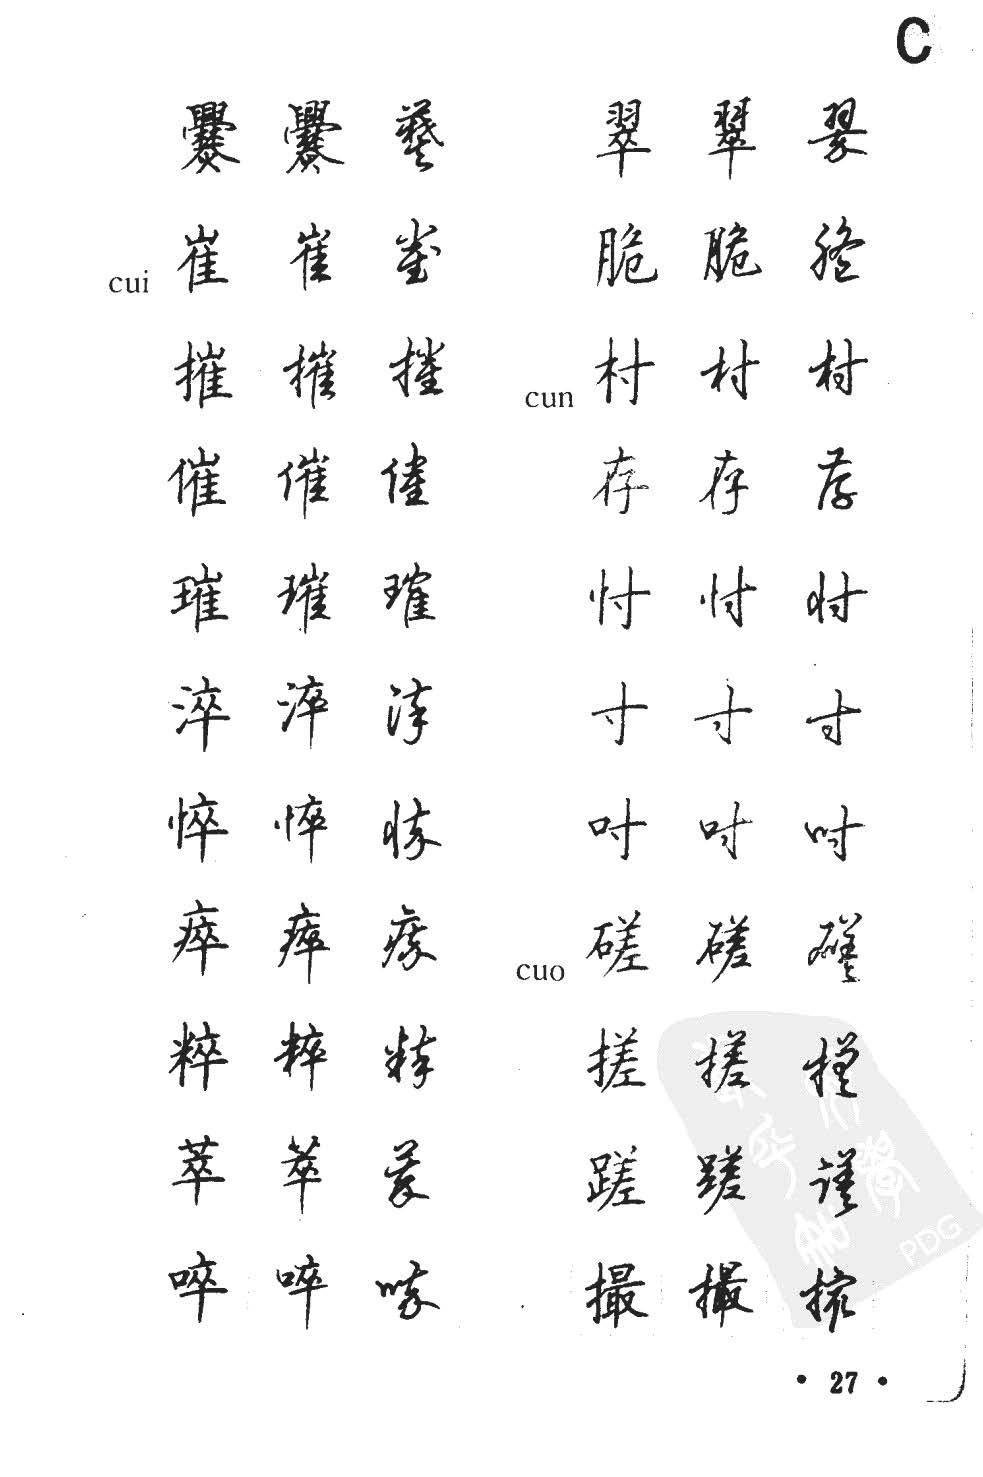 C
爨 爨 爨
cui 崔 崔 崔
摧 摧 摧
催 催 催
璀 璀 璀
淬 淬 淬
悴 悴 悴
瘁 瘁 瘁
粹 粹 粹
萃 萃 萃
啐 啐 啐
翠 翠 翠
脆 脆 脆
cun 村 村 村
存 存 存
忖 忖 忖
寸 寸 寸
吋 吋 吋
cuo 磋 磋 磋
搓 搓 搓
蹉 蹉 蹉
撮 撮 撮
PDG
• 27 •